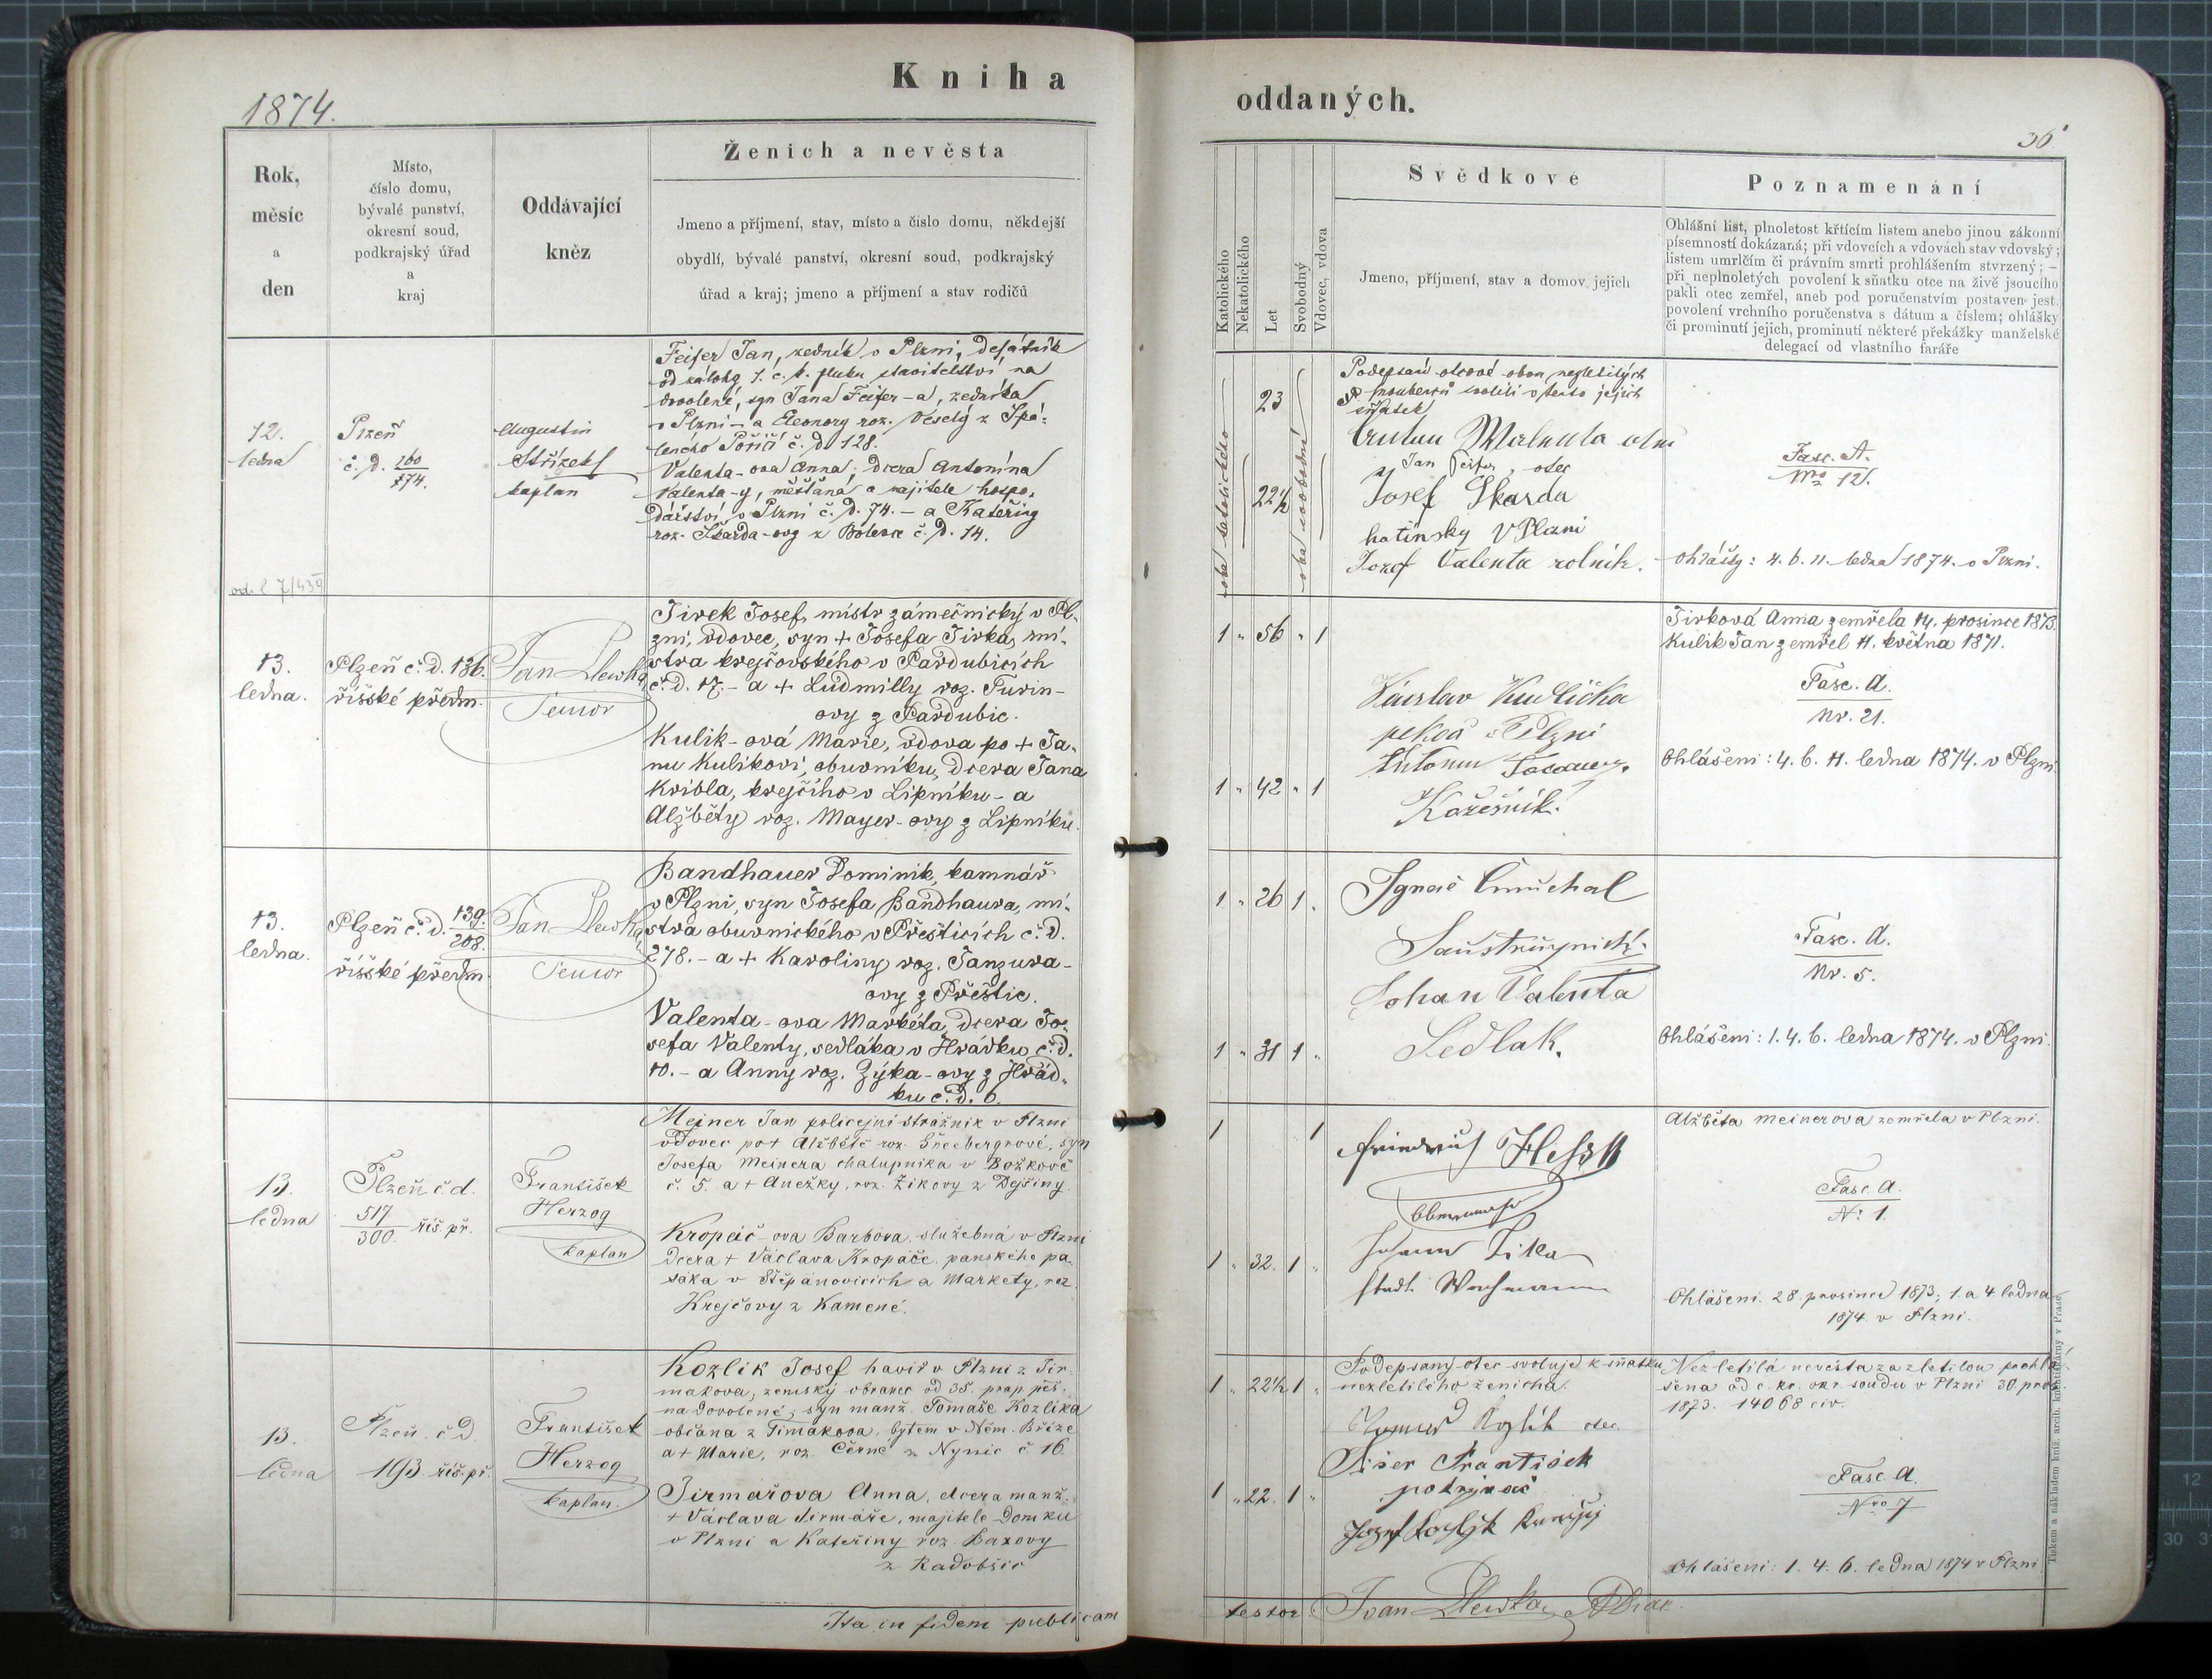 Kniha
oddaných.
1874.
36
Rok,
měsíc
a
den
Místo,
číslo domu,
bývalé panství,
okresní soud,
podkrajský úřad
a
kraj
Oddávající
kněz
Ženich a nevěsta
Jmeno a příjmení, stav, místo a číslo domu, někdejší
obydlí, bývalé panství, okresní soud, podkrajský
úřad a kraj; jmeno a příjmení a stav rodičů
Katolického
Nekatolického
Let
Svobodný
Vdovec, vdova
Svědkové
Jmeno, příjmení, stav a domov jejich
Poznamenání
Ohlášní list, plnoletost křtícím listem anebo jinou zákonní
písemností dokázaná; při vdovcích a vdovách stav vdovský;
listem umrlčím či právním smrti prohlášením stvrzený; –
při neplnoletých povolení k sňatku otce na živě jsoucího
pakli otec zemřel, aneb pod poručenstvím postaven jest.
povolení vrchního poručenstva s dátum a číslem; ohlášky
či prominutí jejich, prominutí některé překážky manželské
delegací od vlastního faráře
12.
ledna
Plzeň
č. d. 160
174.
Augustin
Střízek
kaplan
Feifer Jan, zedník v Plzni, desátník
od zálohy 1. c. k. pluku stavitelství na
dovolené, syn Jana Feifer-a, zedníka
v Plzni - a Eleonory roz. Veselý z Spá-
leného Poříčí č. d. 128.
Valenta-ova Anna, dcera Antonína
Valenta-y, měšťana a majitele hospo-
dářství v Plzni č. d. 74. - a Kateřiny
roz. Škarda-ovy z Bolevce č. d. 14.
23
22½
oba katolického
oba svobodní
Podepsaní otcové obou nezletilých
snoubenců svolili v tento jejich
sňatek
Jan Feifer, otec
Josef Skarda
hatinsky v Plzni
Josef Valenta rolník.
Fasc. A.
Nro 12.
Ohlášky: 4. 6. 11. ledna 1874. v Plzni.
13.
ledna.
Plzeň č. d. 136.
říšské předm.
Jan Llewka
Senior
Jirek Josef, místr zámečnický v Pl-
zni, vdovec, syn + Josefa Jirka, mí-
stra krejčovského v Pardubicích
č. d. 17. - a + Ludmilly roz. Turin-
ovy z Pardubic.
Kulik-ová Marie, vdova po + Ja-
nu Kulikovi, obuvníku, dcera Jana
Kribla, krejčího v Lipníku - a
Alžběty roz. Mayer-ovy z Lipníku.
1 " 56 " 1
1 " 42 " 1
Václav Kudlička
pekař v Plzni
Kožešník.
Jirková Anna zemřela 14. prosince 1873.
Kulik Jan zemřel 11. května 1871.
Fasc. A.
Nr. 21.
Ohlášeni: 4. 6. 11. ledna 1874. v Plzni.
13.
ledna.
Plzeň č. d. 139.
208.
říšské předm.
Jan Llewka
Senior
Bandhauer Dominik, kamnář
v Plzni, syn Josefa Bandhaura, mí-
stra obuvnického v Přešticích č. d.
278. - a + Karoliny roz. Janzura-
ovy z Přeštic.
Valenta-ova Markéta, dcera Jo-
sefa Valenty, sedláka v Hrádku č. d.
10. - a Anny roz. Zýka-ovy z Hrád-
ku č. d. 6.
1 " 26 1 "
1 " 31 1 "
Johan Valenta
Sedlak.
Fasc. A.
Nr. 5.
Ohlášeni: 1. 4. 6. ledna 1874. v Plzni.
13.
ledna
Plzeň č d.
517
300. říš. př.
František
Herzog
kaplan
Meiner Jan policejní strážník v Plzni
vdovec po + Alžbětě roz. Šneebergrově, syn
Josefa Meinera chalupníka v Božkově
č. 5. a + Anežky, roz. Žikovy z Dejšiny.
Kropáč-ova Barbora, služebná v Plzni
dcera + Václava Kropáče, panského pa-
sáka v Štěpánovicích a Markety, roz.
Krejčovy z Kamené.
1 1
1 " 32. 1 "
Friedrich Hess
Johann Zika
Stadt Wachmann
Alžběta Meinerova zemřela v Plzni.
Fasc. A.
N: 1.
Ohlášeni. 28. prosince 1873; 1. a 4 ledna
1874. v Plzni.
13.
ledna
Plzeň. č D.
193 říš. př.
František
Herzog
kaplan.
Kozlík Josef havíř v Plzni z Tir-
makova, zemský obranec od 35. prap. pěš.
na dovolené; syn manž. Tomaše Kozlíka
občana z Timakova, bytem v Něm. Bříze
a + Marie, roz. Černé z Nynic č 16.
Jirmařova Anna, dcera manž.
+ Václava Jirmáře, majitele domku
v Plzni a Kateřiny roz. Baxovy
z Radobčic
1 " 22½ 1 "
1 " 22. 1 "
Podepsaný otec svoluje k sňatku
nezletilého ženicha.
Kozlík otec.
František
Nezletilá nevěsta za zletilou prohlá-
šena od c. kr. okr. soudu v Plzni 30. pros.
1873. 14068 civ.
Fasc. A.
Nro 7
Ohlášeni: 1. 4. 6. ledna 1874 v Plzni
Ita in fidem publicam
testor Ivan Llewka